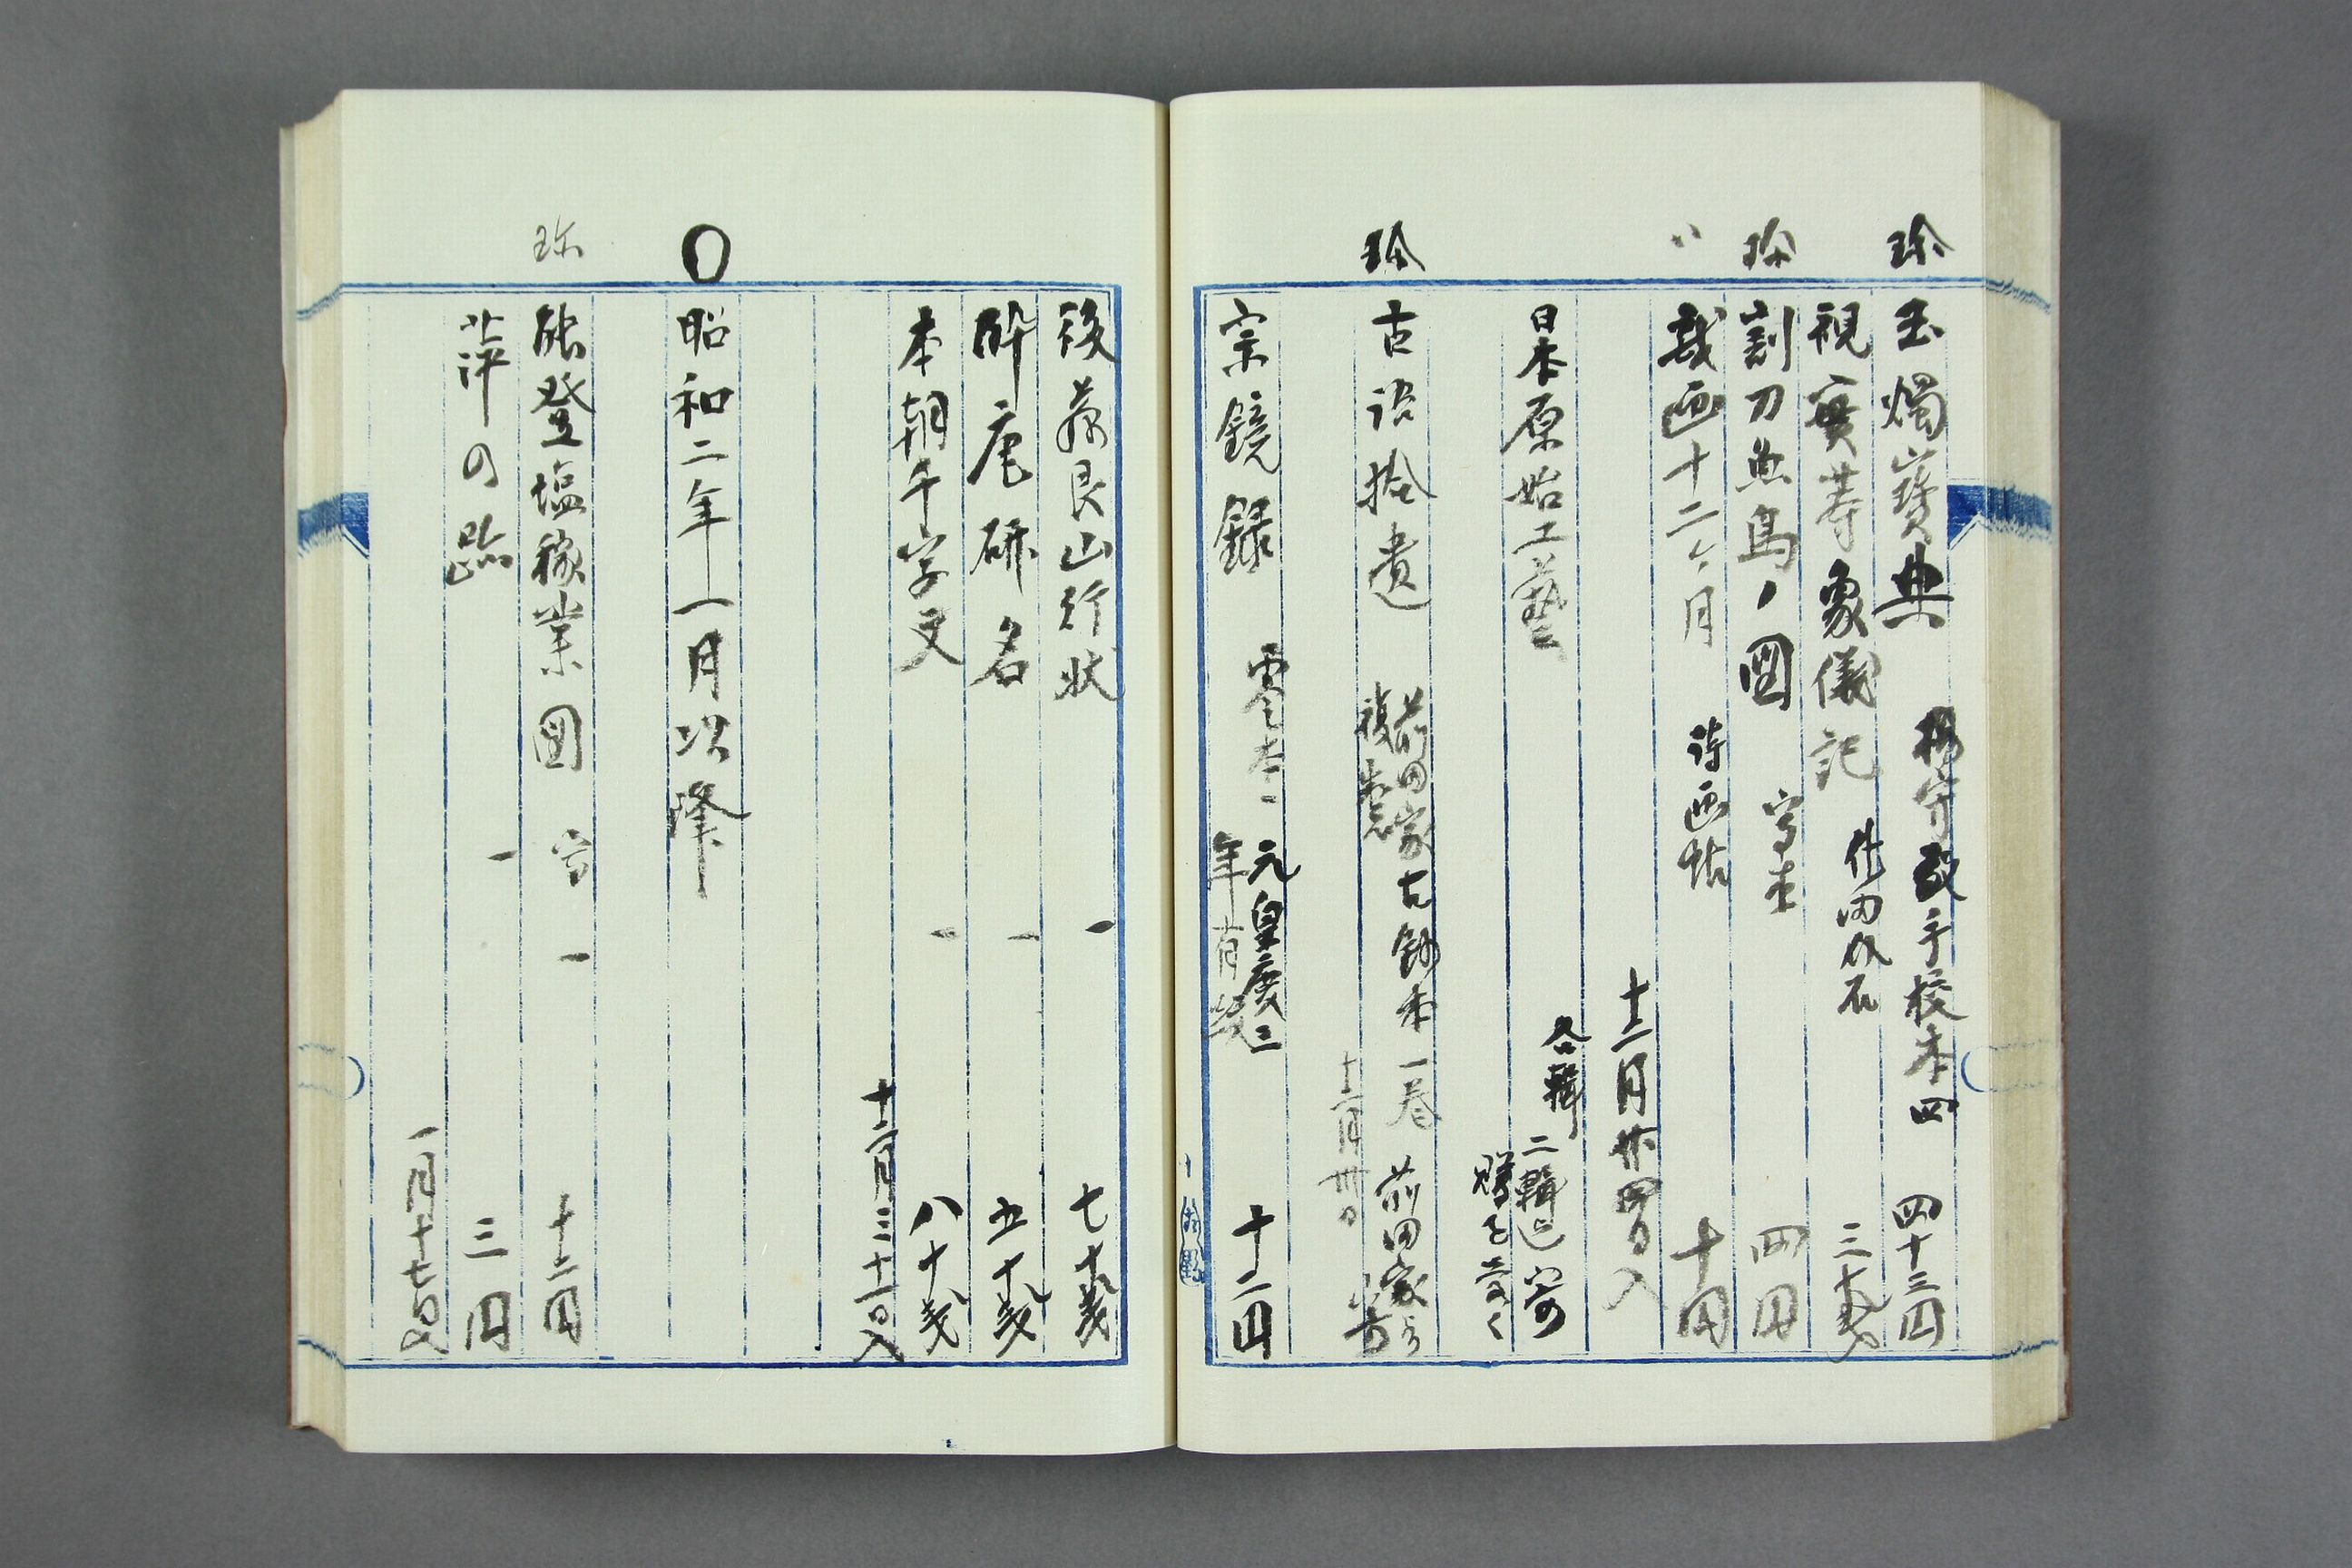 珍 玉燭寶典 楊守敬手校本 四 四十三円
視實等象儀記 仕田 三十銭
珍 割刀魚鳥ノ圖 寫本 四円
〃 戯画十二ヶ月 詩画帖 十円
十二月廿四日入
日本原始工藝 各輯 二輯迄寄
贈を受く
珍 古語拾遺 前田家古鈔本一巻 前田家ゟ
複製 寄
十二月卅日
宗鏡録 零本一 元皇慶三 十二円
年有奖
後藤艮山行状 一 七十銭
酔庵硯名 一 五十銭
本朝千字文 一 八十銭
十二月三十一日入
〇 昭和二年一月以降
珍 能登塩稼業図 写 一 十二円
萍の跡 一 三円
一月十七日入